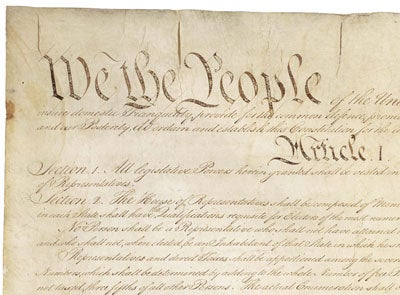 We the People of the Uni
insure domestic Tranquility, provide for the common defence, promo
and our Posterity, do ordain and establish this Constitution for the
Article. I.
Section. 1. All legislative Powers herein granted shall be vested in
of Representatives.
Section. 2. The House of Representatives shall be composed of Mem
in each State shall have Qualifications requisite for Electors of the most numer
No Person shall be a Representative who shall not have attained
and who shall not, when elected, be an Inhabitant of that State in which he
Representatives and direct Taxes shall be apportioned among the several
Numbers, which shall be determined by adding to the whole Number of free P
not taxed, three fifths of all other Persons. The actual Enumeration shall